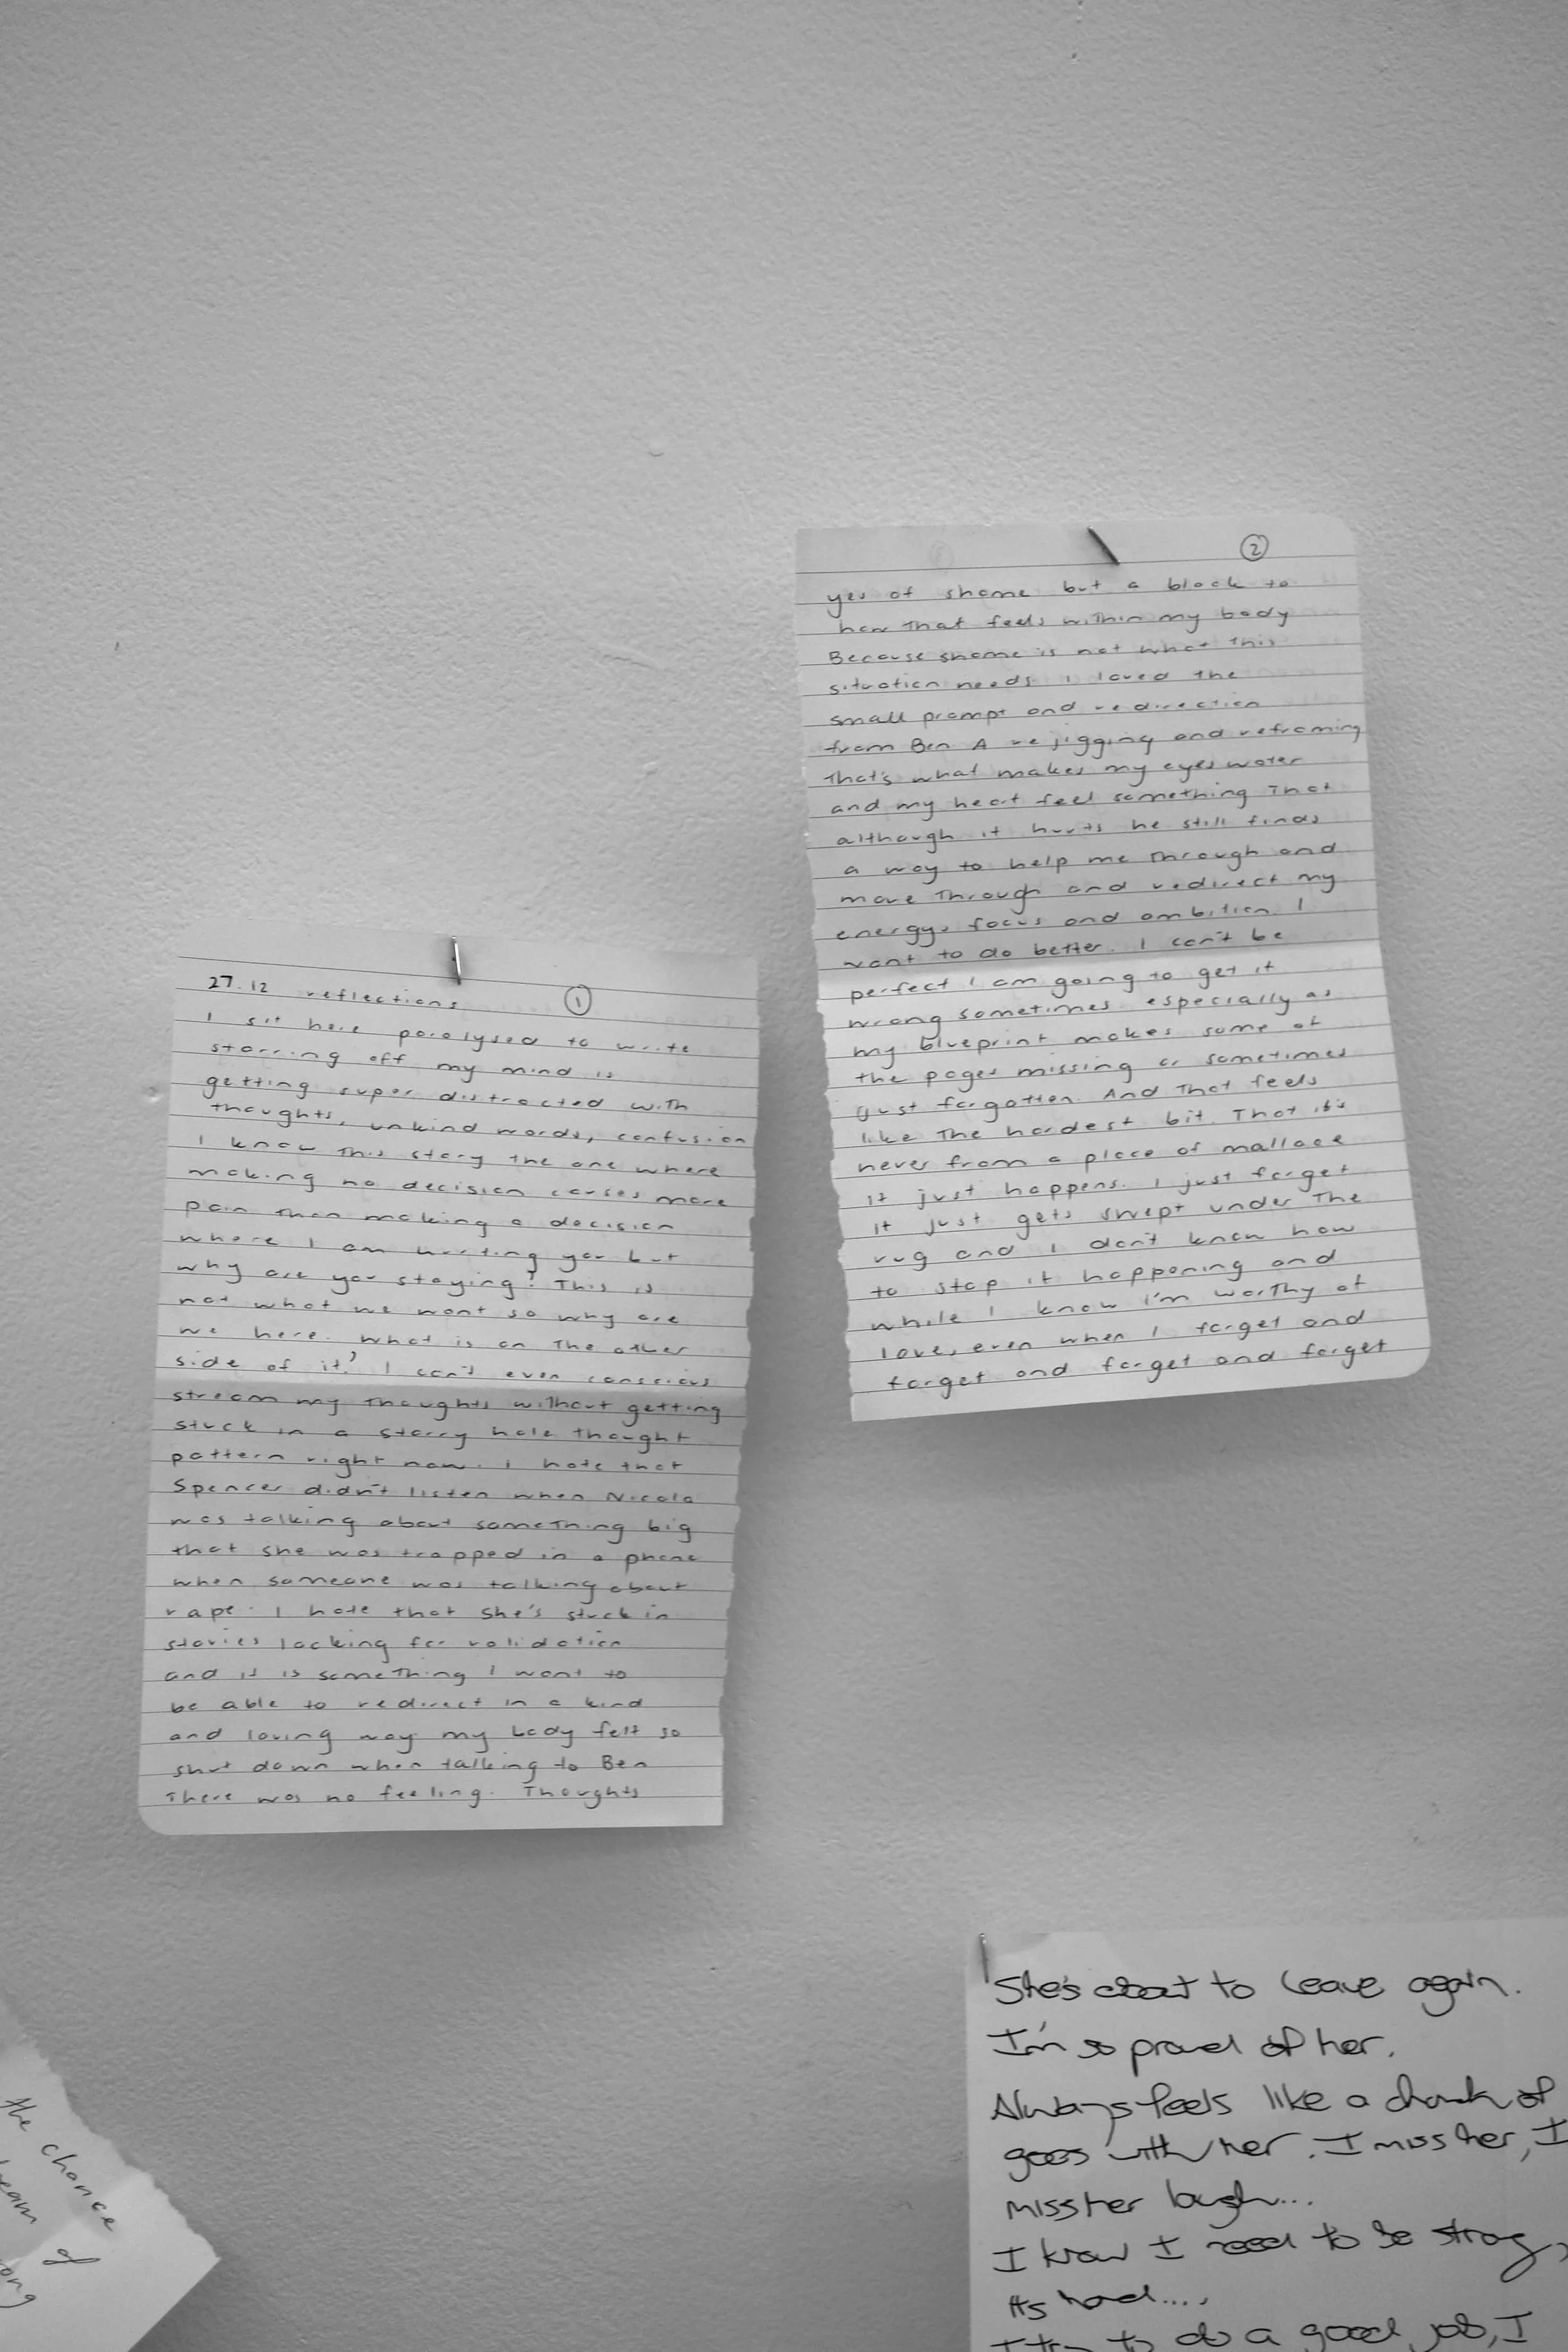 27.12 reflections ①
I sit here paralysed to write
starring off my mind is
getting super distracted with
thoughts, unkind words, confusion
I know this story the one where
making no decision causes more
pain than making a decision
where I am hurting you but
why are you staying? This is
not what we want so why are
we here. What is on the other
side of it? I can't even conscious
stream my thoughts without getting
stuck in a starry hole thought
pattern right now. I hate that
Spencer didn't listen when Nicola
was talking about something big
that she was trapped in a phone
when someone was talking about
rape. I hate that she's stuck in
stories looking for validation
and it is something I want to
be able to redirect in a kind
and loving way. my body felt so
shut down when talking to Ben
There was no feeling. Thoughts
②
yes of shame but a block to
how that feels within my body
Because shame is not what this
situation needs. I loved the
small prompt and redirection
from Ben. A rejigging and reframing
That's what makes my eyes water
and my heart feel something That
although it hurts he still finds
a way to help me through and
move through and redirect my
energy, focus and ambition. I
want to do better. I can't be
perfect I am going to get it
wrong sometimes especially as
my blueprint makes some of
the pages missing or sometimes
just forgotten. And that feels
like the hardest bit. That it's
never from a place of mallace
it just happens. I just forget
it just gets swept under the
rug and I don't know how
to stop it happening and
while I know I'm worthy of
love, even when I forget and
forget and forget and forget
She's about to leave again.
I'm so proud of her.
Always feels like a chunk of
goes with her. I miss her, I
miss her laugh...
I know I need to be strong,
its hard....
I try to do a good job, I
the chance
of